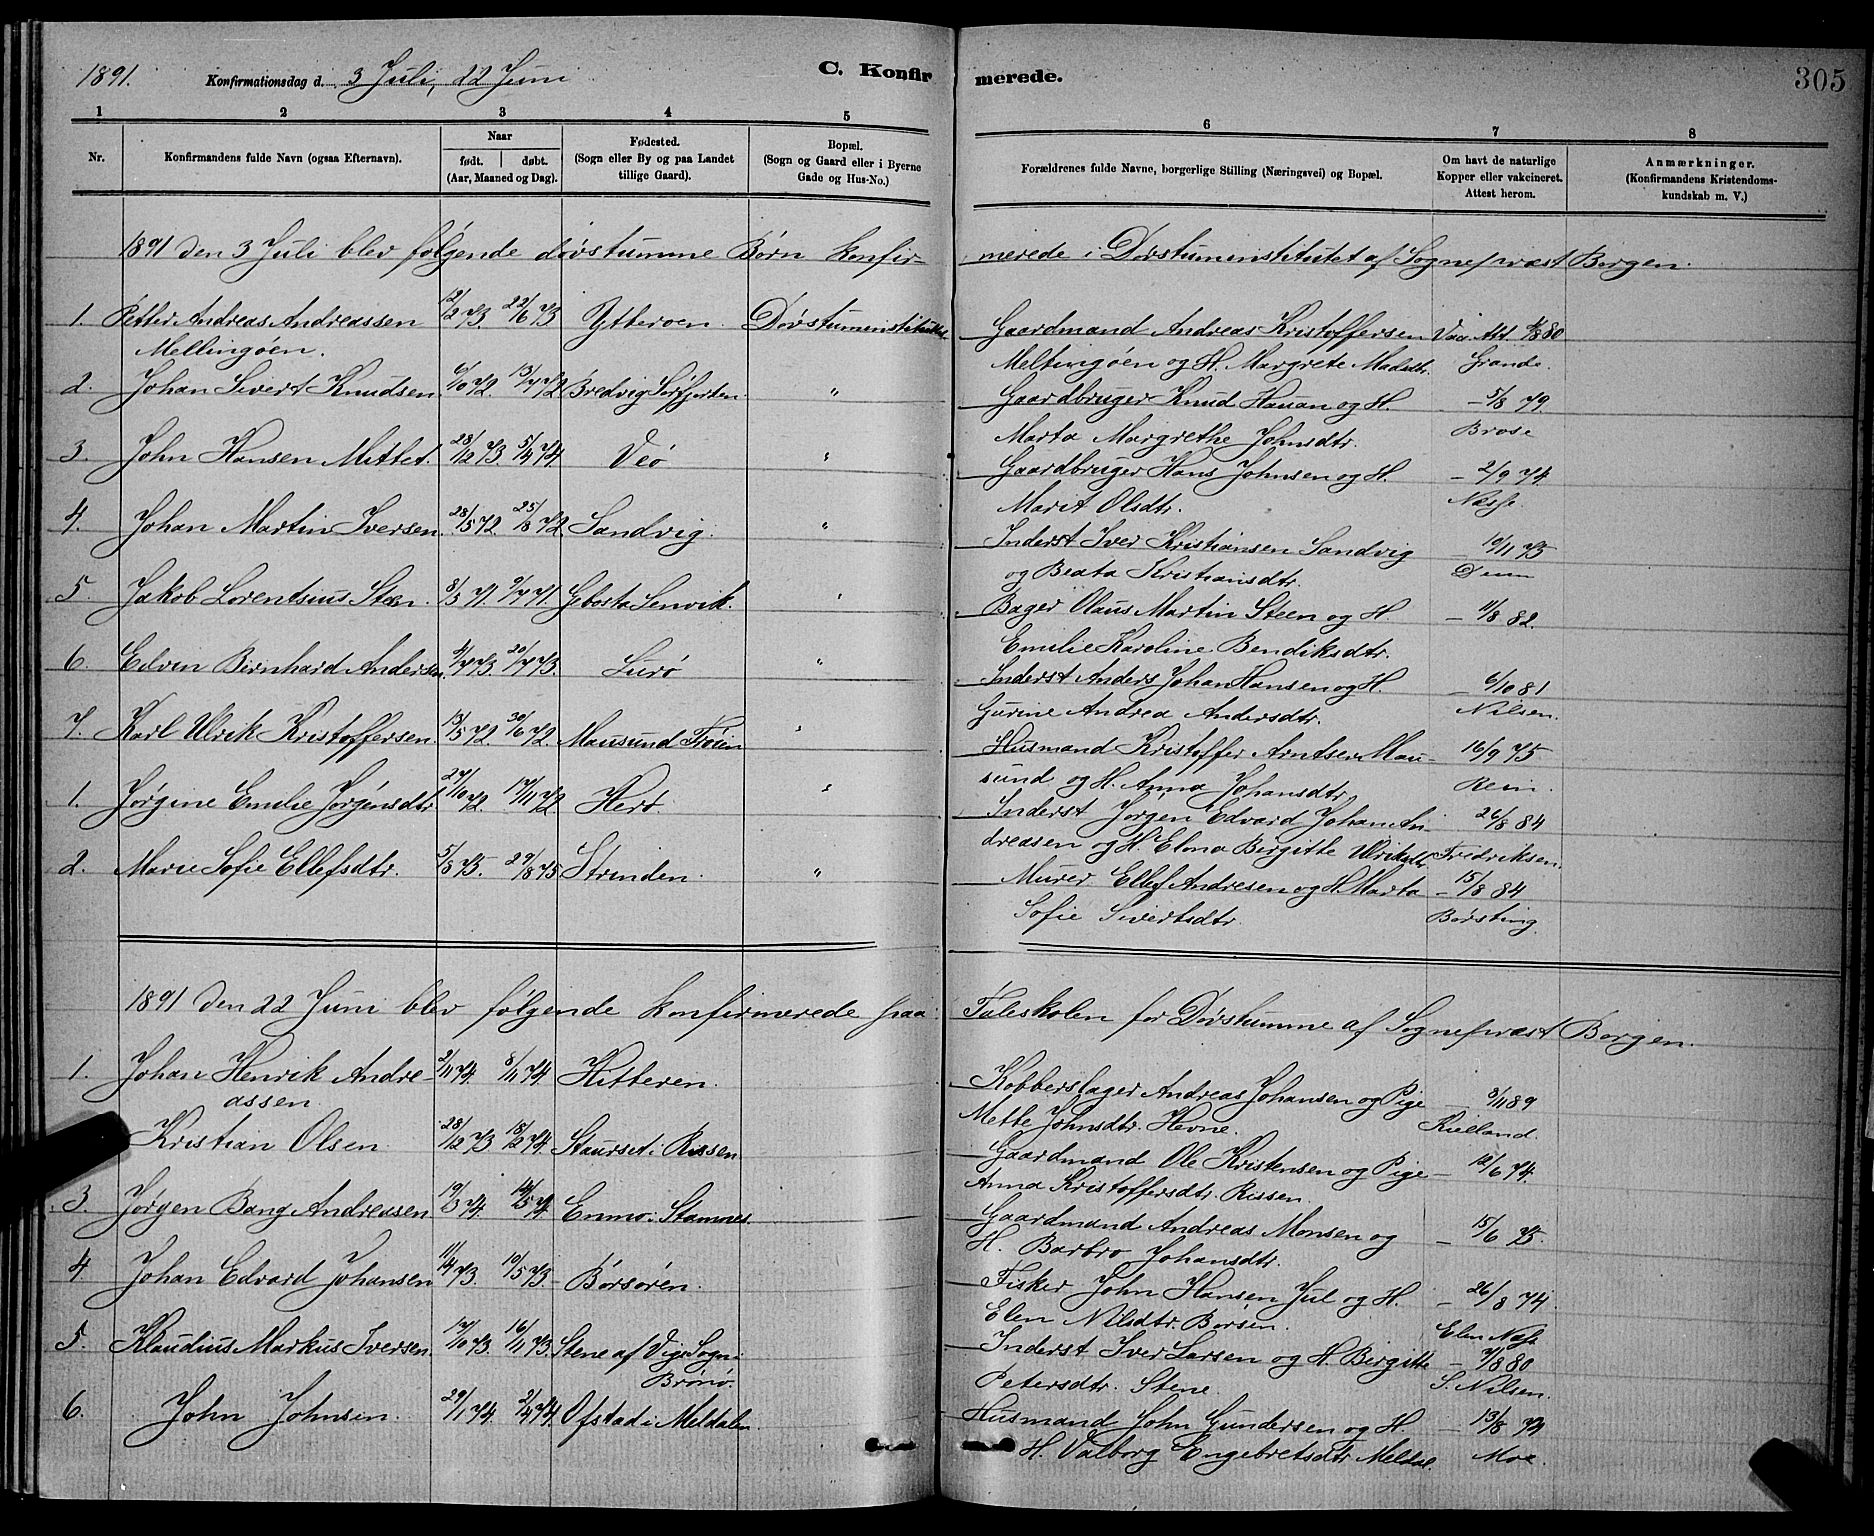 1891. Konfirmationsdag d. 3 Juli, 22 Juni C. Konfirmerede. 305
1 2 3 4 5 6 7 8
Nr. Konfirmandens fulde Navn (ogsaa Efternavn). Naar født. døbt. (Aar, Maaned og Dag). Fødested. (Sogn eller By og paa Landet tillige Gaard). Bopæl. (Sogn og Gaard eller i Byerne Gade og Hus-No.) Forældrenes fulde Navne, borgerlige Stilling (Næringsvei) og Bopæl. Om havt de naturlige Kopper eller vakcineret. Attest herom. Anmærkninger. (Konfirmandens Kristendomskundskab m. V.)
1891 den 3 Juli blev følgende døvstumme Børn konfirmerede i Døvstuminstitutet af Sognepræst Borgen.
1. Petter Andreas Andreassen 12/2 73. 22/6 73 Ytterøen. Døvstuminstitutet Gaardmand Andreas Kristoffersen Vac. Att. 80
Mellingøen. Meltingøen og H. Margrete Madsdtr. Grande.
2. Johan Sivert Knudsen. 72. 72 Bredvig Sørfjorden " Gaardbruger Knud Hauan og H. – 5/8 79.
Marta Margrethe Johnsdtr. Brose
3. John Hansen Mittet. 28/12 73. 5/4 74. Veø " Gaardbruger Hans Johnsen og H. – 2/9 74.
Marit Olsdtr. Næsse.
4. Johan Martin Iversen. 28/5 72. 25/8 72 Sandvig. " Inderst Iver Kristiansen Sandvig – 19/11 73
og Beata Kristiansdtr.
5. Jakob Lorentsius Steen. 8/3 71. 9/7 71. Gebosta Senvik. " Bager Olaus Martin Steen og H. – 11/8 82.
Emilie Karoline Bendiksdtr.
6. Edvin Bernhard Andersen. 73. 20/7 73. Lurø " Inderst Anders Johan Hansen og H. – 6/10 81
Gurine Andrea Andersdtr. Nilsen.
7. Karl Ulrik Kristoffersen. 13/5 72. 30/6 72. Mausund Frøien " Husmand Kristoffer Arntsen Mau- 16/9 75
sund og H. Anna Johansdtr. Rein.
1. Jørgine Emilie Jørgensdtr 27/10 72. 17/11 72. Herø. " Inderst Jørgen Edvard Johan An- 26/8 84
dreasen og H. Elona Bergitte Ulriksdtr Fredriksen.
2. Marie Sofie Ellefsdtr. 5/8 75. 29/8 75 Strinden. " Murer Ellef Andresen og H. Marta – 15/8 84
Sofie Sivertsdtr. Børsting.
1891 den 22 Juni blev følgende konfirmerede paa Taleskolen for Døvstumme af Sognepræst Borgen.
1. Johan Henrik Andre- 2/11 74. 8/11 74. Hitteren. Kobberslager Andreas Johansen og Pige – 8/11 89
assen. Mette Johnsdtr. Hevne. Kielland.
Kristian Olsen 28/12 73 18/2 74. Staurset i Rissen Gaardmand Ole Kristensen og Pige – 12/6 74.
Anna Kristoffersdtr. Rissen.
3. Jørgen Bang Andreasen 19/3 74. 14/5 74. Enmo i Stamnes. Gaardmand Andreas Monsen og – 15/6 75.
H. Barbro Johansdtr.
4 Johan Edvard Johansen 11/4 73. 19/5 73. Børsøren. Fisker John Hansen Jul og H. – 26/8 74.
Elen Nilsdtr. Børsen. Elen Næss
5. Klaudius Markus Iversen. 17/10 73. 16/11 73. Stene af Vigs Sogn i Inderst Iver Larsen og H. Birgitte – 7/8 80
Brønø. Petersdtr. Stene. S. Nilsen.
6. John Johnsen. 29/1 74. 2/4 74. Ofstad i Meldalen Husmand John Gundersen og H. – 13/8 74
H. Valborg Engebretsdtr Meldal. Moe.